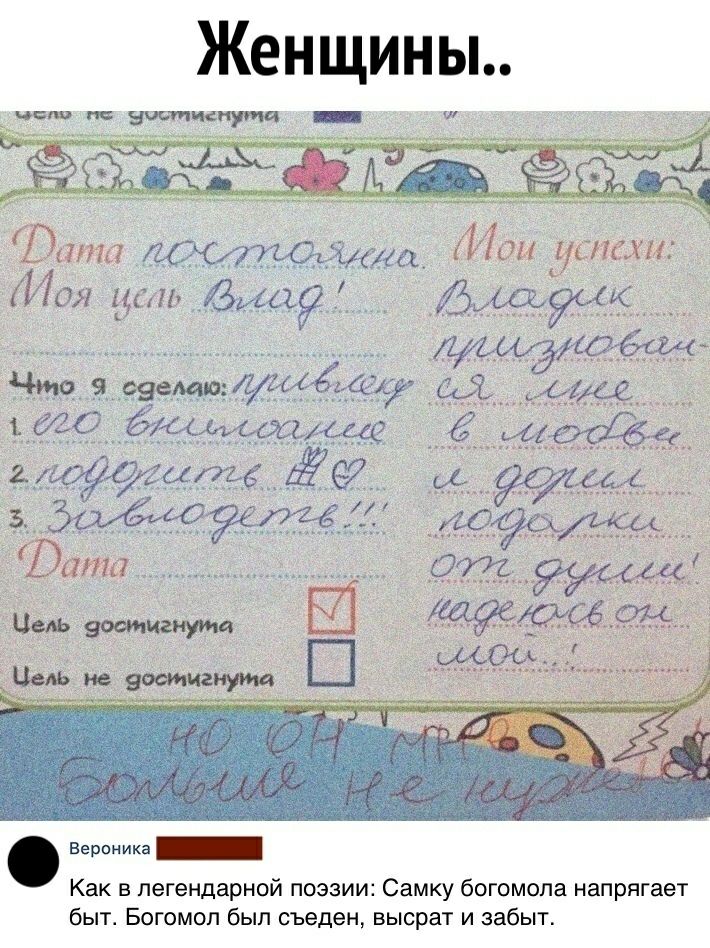 Женщины..
Цель не достигнута
Дата постоянна.
Моя цель Влад!
Что я сделаю: привлеку
1. его внимание
2. подорить
3. Завлодеть!!!
Дата
Цель достигнута
Цель не достигнута
Мои успехи:
Владик
призновал-
ся мне
в любви
и дорил
подарки
от души!
надеюсь он
мой..!
но он мне
больше не нужен
Вероника
Как в легендарной поэзии: Самку богомола напрягает
быт. Богомол был съеден, высрат и забыт.